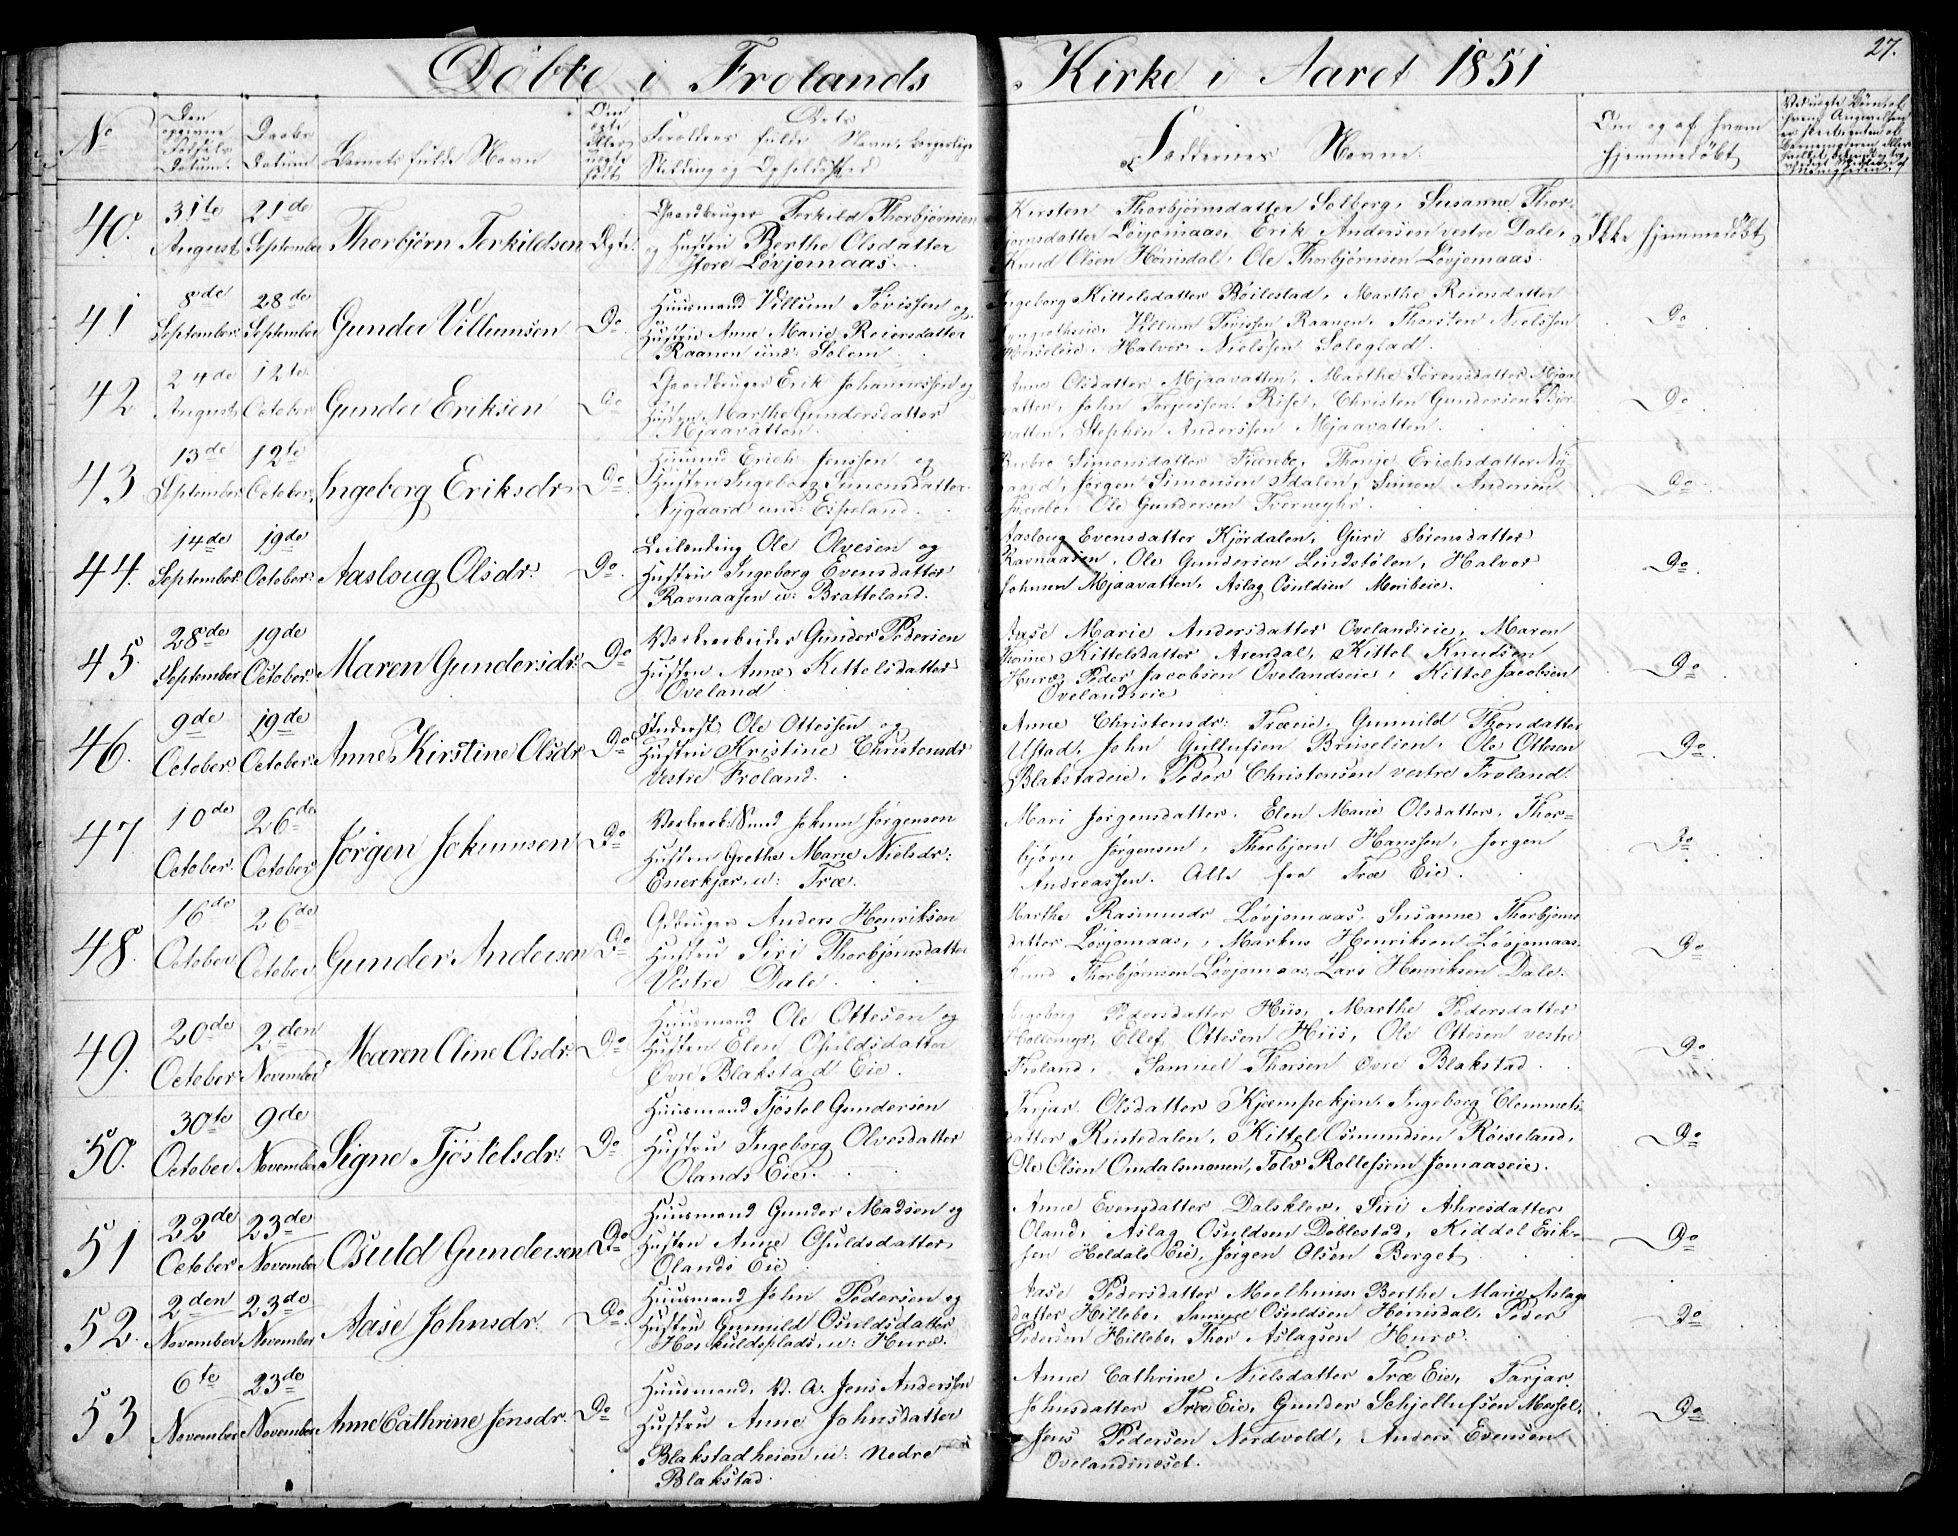 27.
Döbte i Frolands Kirke i Aaret 1851
No
Den opgivne Födsels Datum.
Daabs Datum
Barnets fulde Navn
Om ægte eller uægte födt
Forældres fulde Navn, borgerlige
Stilling og Opholdssted
Faddernes Navne.
Om og af hvem
hjemmedöbt
40. 31te August 21de September Thorbjörn Terkildsen Ægte.
Gaardbruger Terkild Thorbjörnsen
og Hustru Berthe Olsdatter
store Løvjomaas.
Kirsten Thorbjörnsdatter Solberg, Susanne Thor-
bjornsdatter Løvjomaas, Erik Andersen vestre Dale,
Knud Olsen Hönisdal, Ole Thorbjörnsen Lövjomaas.
Ikke hjemmedöbt
41 8de September 28de September Gunder Villumsen Do.
Huusmand Villum Tovissen og
Hustru Anne Marie Reiersdatter
Raanen und: Solem.
Ingeborg Kittelsdatter Böilestad, Marthe Reiersdatter
Villum Tovissen Raanen, Thorsten Nielssen
Halvor Nielssen Soleglad.
Do
42 24de August 12te October Gunder Eriksen Do
Gaardbruger Erik Johannessen og
Hustru Marthe Gundersdatter
Mjaavatten.
Anne Olsdatter Mjaavatten, Marthe Sörensdatter Mjaa-
vatten, John Terjessen Rise, Christen Gundersen
vatten, Stephen Anderssen Mjaavatten.
Do
43 13de September 12te October Ingeborg Eriksdr Do
Huusmd Erich Jenssen og
Hustru Ingeborg Simonsdatter
Nygaard und: Espeland.
Barbro Simonsdatter Thorje Erichsdatter Ny-
gaard, Jörgen Simonsen Idalen, Simon Andersen
Ole Gundersen Tvermyhr.
Do
44. 14de September 19de October Aasloug Olsdr: Do.
Leilænding Ole Olvesen og
Hustru Ingeborg Evensdatter
Ravnaasen u: Bratteland.
Aasloug Evensdatter Kjördalen, Guri Sörensdatter
Ravnaasen, Ole Gundersen Lindstölen, Halvor
Johnsen Mjaavatten, Aslag Osuldsen Meribeie.
Do.
45. 28de September 19de October Maren Gundersdr: Do
Verksarbeider Gunder Pedersen
Hustru Anne Kittelsdatter
Oveland
Aase Marie Andersdatter Ovelandseie, Maren
Thorine Kittelsdatter Arendal, Kittel Knudsen
Huræ, Peder Jacobsen Ovelandseie, Kittel Jacobsen
Ovelandseie
Do
46. 9de October 19de October Anne Kirstine Olsdr Do
Inderst Ole Ottessen og
Hustru Kristine Christensdr
Vestre Froland.
Anne Christensdr: Træeie, Gunnild Thorsdatter
Ustad, John Gullufsen Bruselien, Ole Ottesen
Blakstadeie, Peder Christensen vestre Froland.
Do
47 10de October 26de October Jörgen Jokumsen Do
Jokum Jörgensen
Hustru Grethe Marie Nielsdr:
Enerkjær u: Træ.
Mari Jörgensdatter, Elen Marie Olsdatter, Thor-
björn Jörgensen, Thorbjorn Hanssen, Jorgen
Andreassen. Alle fra Træ Eie.
Do
48. 16de October 26de October Gunder Andersen Do
Gdbruger Anders Henriksen
Hustru Siri Thorbjørnsdatter
Vestre Dale.
Marthe Rasmusdr Løvjomaas, Susanne Thorbjorns-
datter Løvjomaas, Markus Henriksen Løvjomaas.
Knud Thorbjørnsen Løvjomaas, Lars Henriksen Dale.
Do
49. 20de October 2den November Maren Oline Olsdr: Do
Huusmand Ole Ottesen og
Hustru Elen Osuldsdatter
Övre Blakstad Eie.
Ingeborg Pedersdatter Hiis, Marthe Pedersdatter
Hollemyr, Ellef Ottesen Hiis, Ole Ottesen vestre
Froland, Samuel Thorsen Övre Blakstad.
Do
50. 30te October 9de November Signe Tjöstelsdr: Do
Huusmand Tjöstel Gundersen
Hustru Ingeborg Olvesdatter
Olands Eie.
Tarjær Olsdatter Kjæmpekjen, Ingeborg Clemmets-
datter Rustedalen, Kittel Osmundsen Röiseland,
Ole Olsen Omdalsmonen, Tolv Rollefsen Jomaaseie.
Do
51 22de October 23de November Osuld Gundersen Do
Huusmand Gunder Madsen og
Hustru Anne Osuldsdatter
Olands Eie
Anne Evensdatter Dalsklev, Siri Ahresdatter
Oland, Aslag Osuldsen Doblestad, Kiddel Erik-
sen Heldals Eie, Jörgen Olsen Berget
Do
52. 2den November 23de November Aase Johnsdr. Do
Huusmand John Pedersen og
Hustru Gunnild Osuldsdatter
Hos kuldsplads, u: Huræ.
Aase Pedersdatter Berthe Marie Aslags-
datter Hillebo, Samuel Osuldsen Hönisdal, Peder
Pedersen Hillebo, Thor Aslagsen Huræ.
Do
53 6te November 23de November Anne Cathrine Jensdr. Do
Huusmand, V. A. Jens Anderssen
Hustru Anne Johnsdatter
Blakstadheien u: nedre
Blakstad.
Anne Cathrine Nielsdatter Træ Eie, Tarjær
Johnsdatter Træ Eie, Gunder Schjellufsen Messel,
Jens Pedersen Nordvold, Anders Evensen
Ovelandsneset.
Do